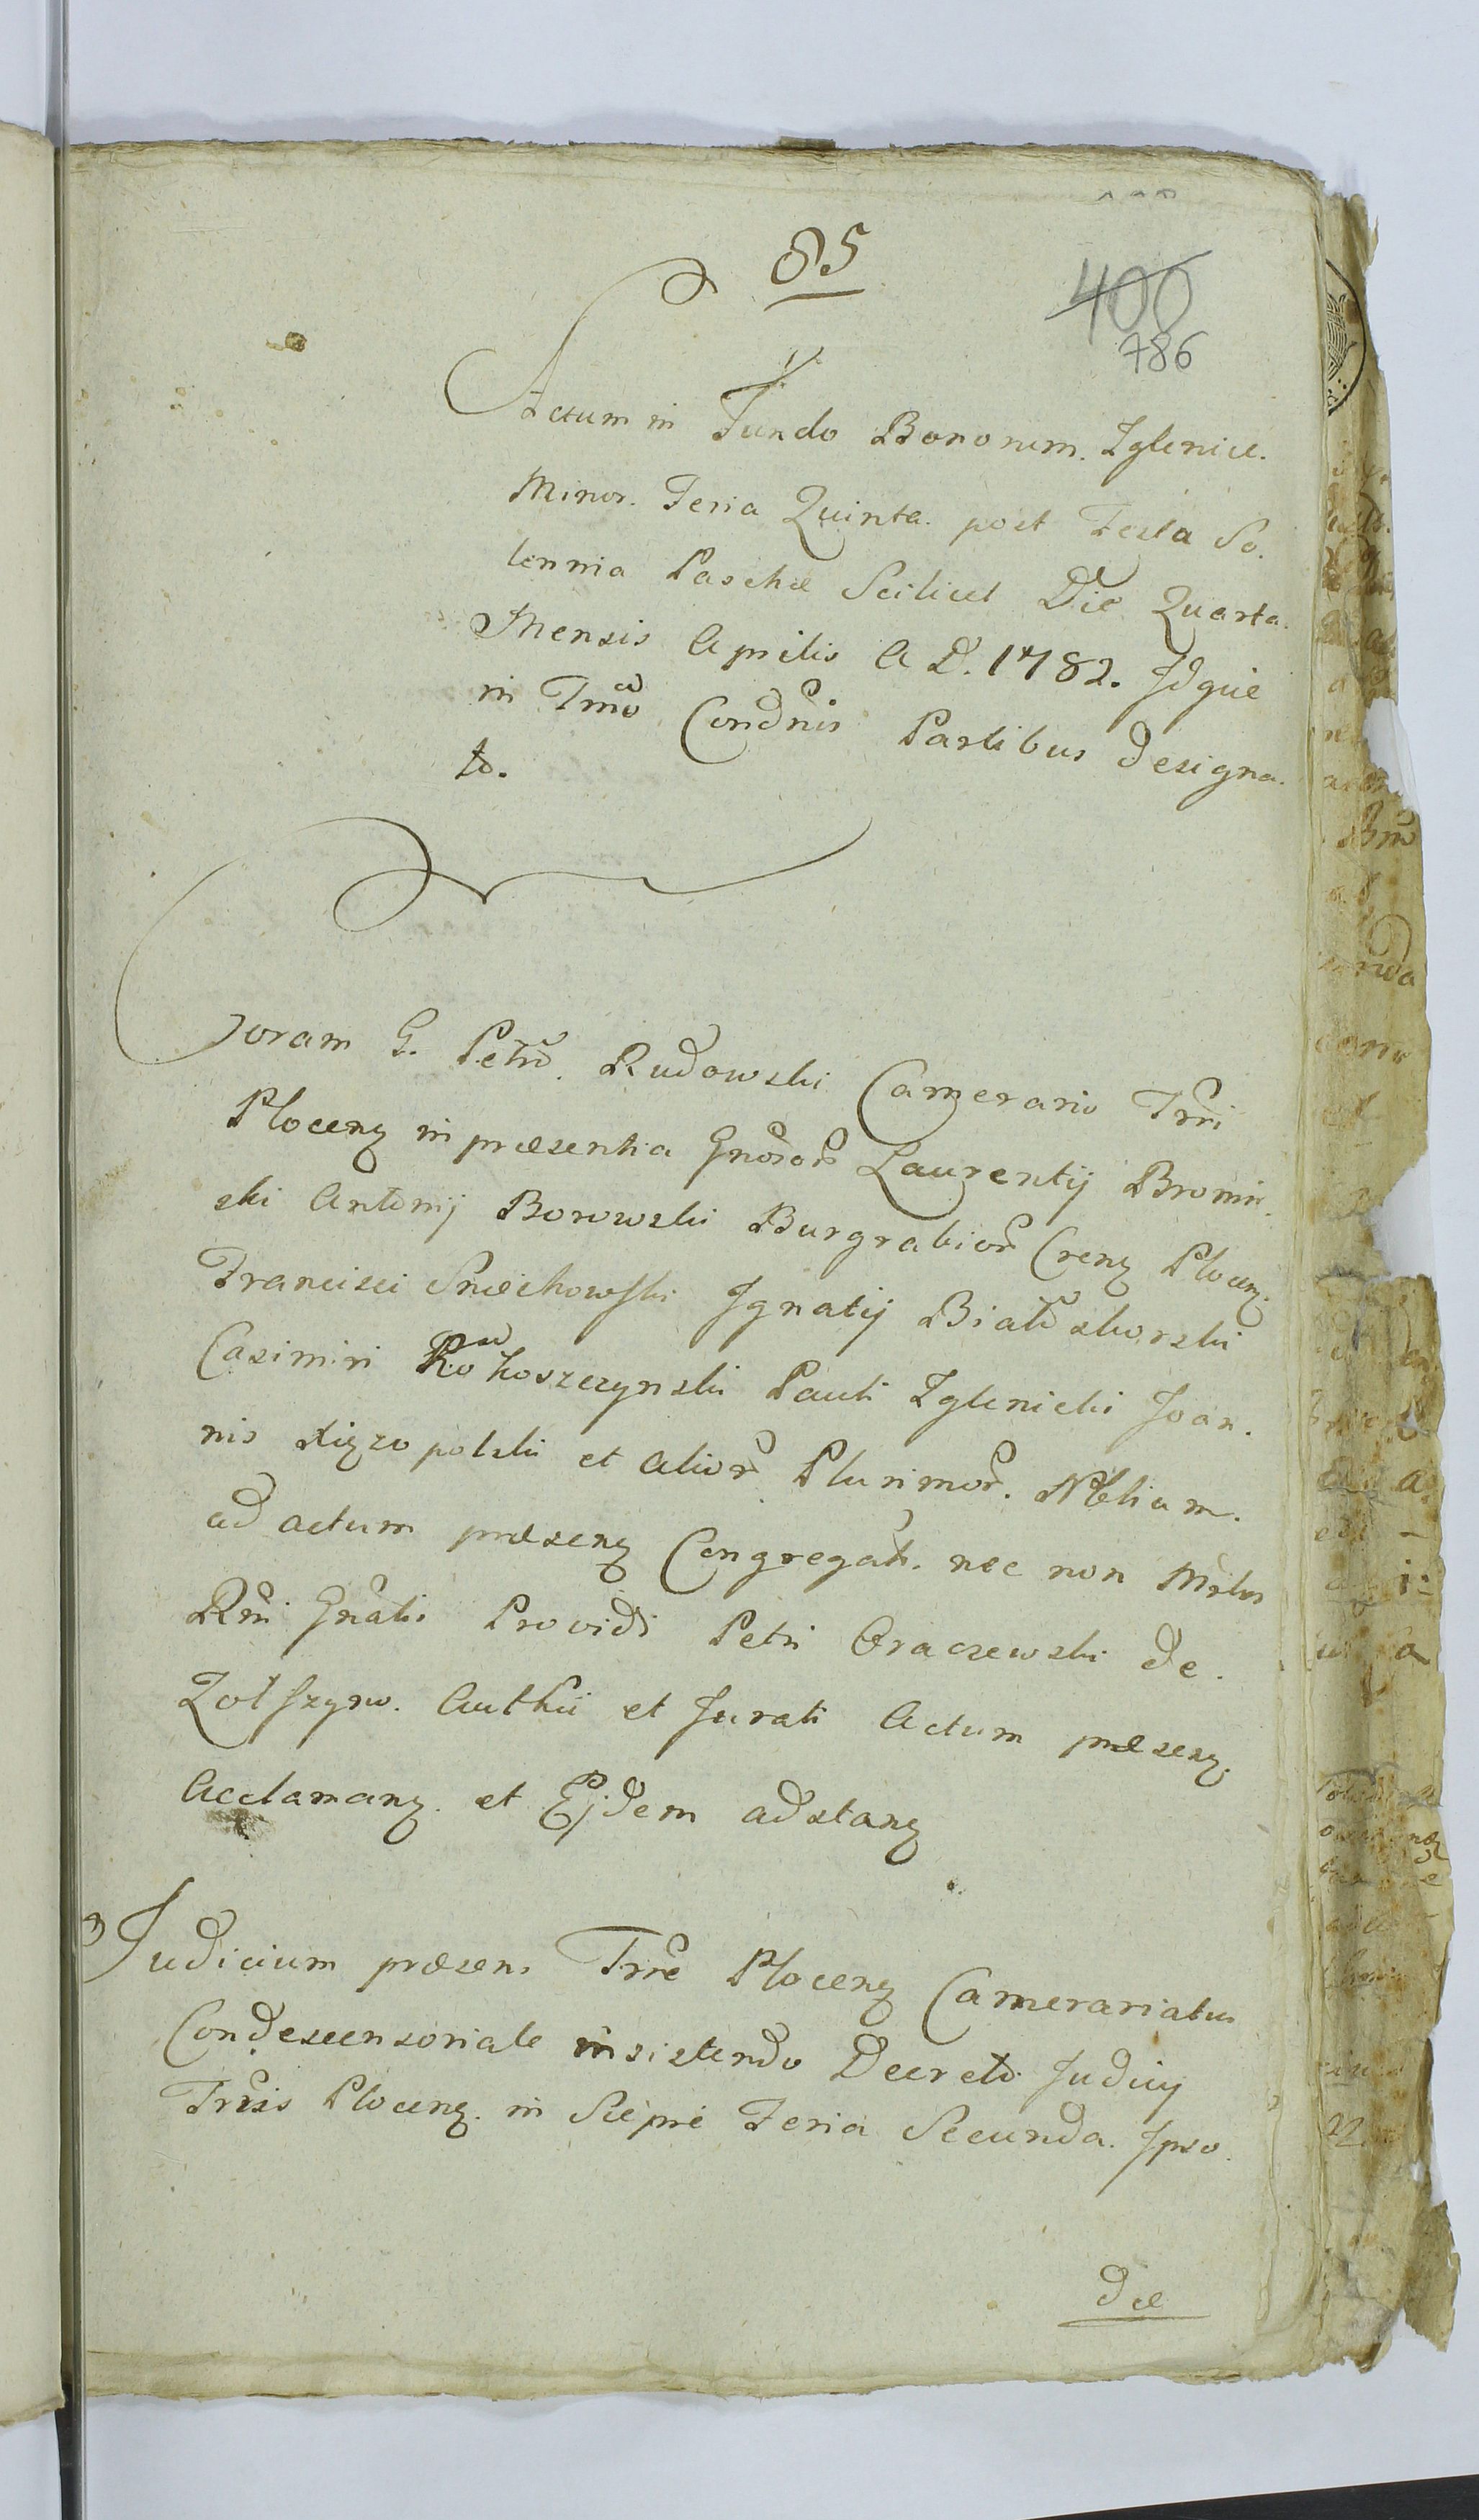 85
400
786
Actum in Fundo Bonorum Iglenice.
Minor. Feria Quinta. post Festa So.
lennia Paschæ Scilicet Die Quarta.
Mensis Aprilis A D. 1782. Idque
in Tmo Condnis Partibus designa.
to.
Coram G. Petro. Rudowski Camerario Trri
Plocenz in præsentia Gnosor Laurentij Bromir.
ski Antonij Borowski Burgrabior Crenz Plocenz.
Francisci Sniechowski Ignatij Białoskorski
Casimiri Rokoszczynski Pauli Iglenicki Joan.
nis et alior Plurimor. Nblium.
ad actum præsenz Congregat. nec non Mrlis
Rni Gnalis Providi Petri Graczewski de.
Authci et Jurati Actum præsenz.
Acclamanz. et Ejdem adstanz
Judicium præsens Trre Plocenz Camerariatus
Condescensoriale insistendo Decreto Judicij
Trris Plocenz. in Sieprc Feria Secunda. Ipso.
die